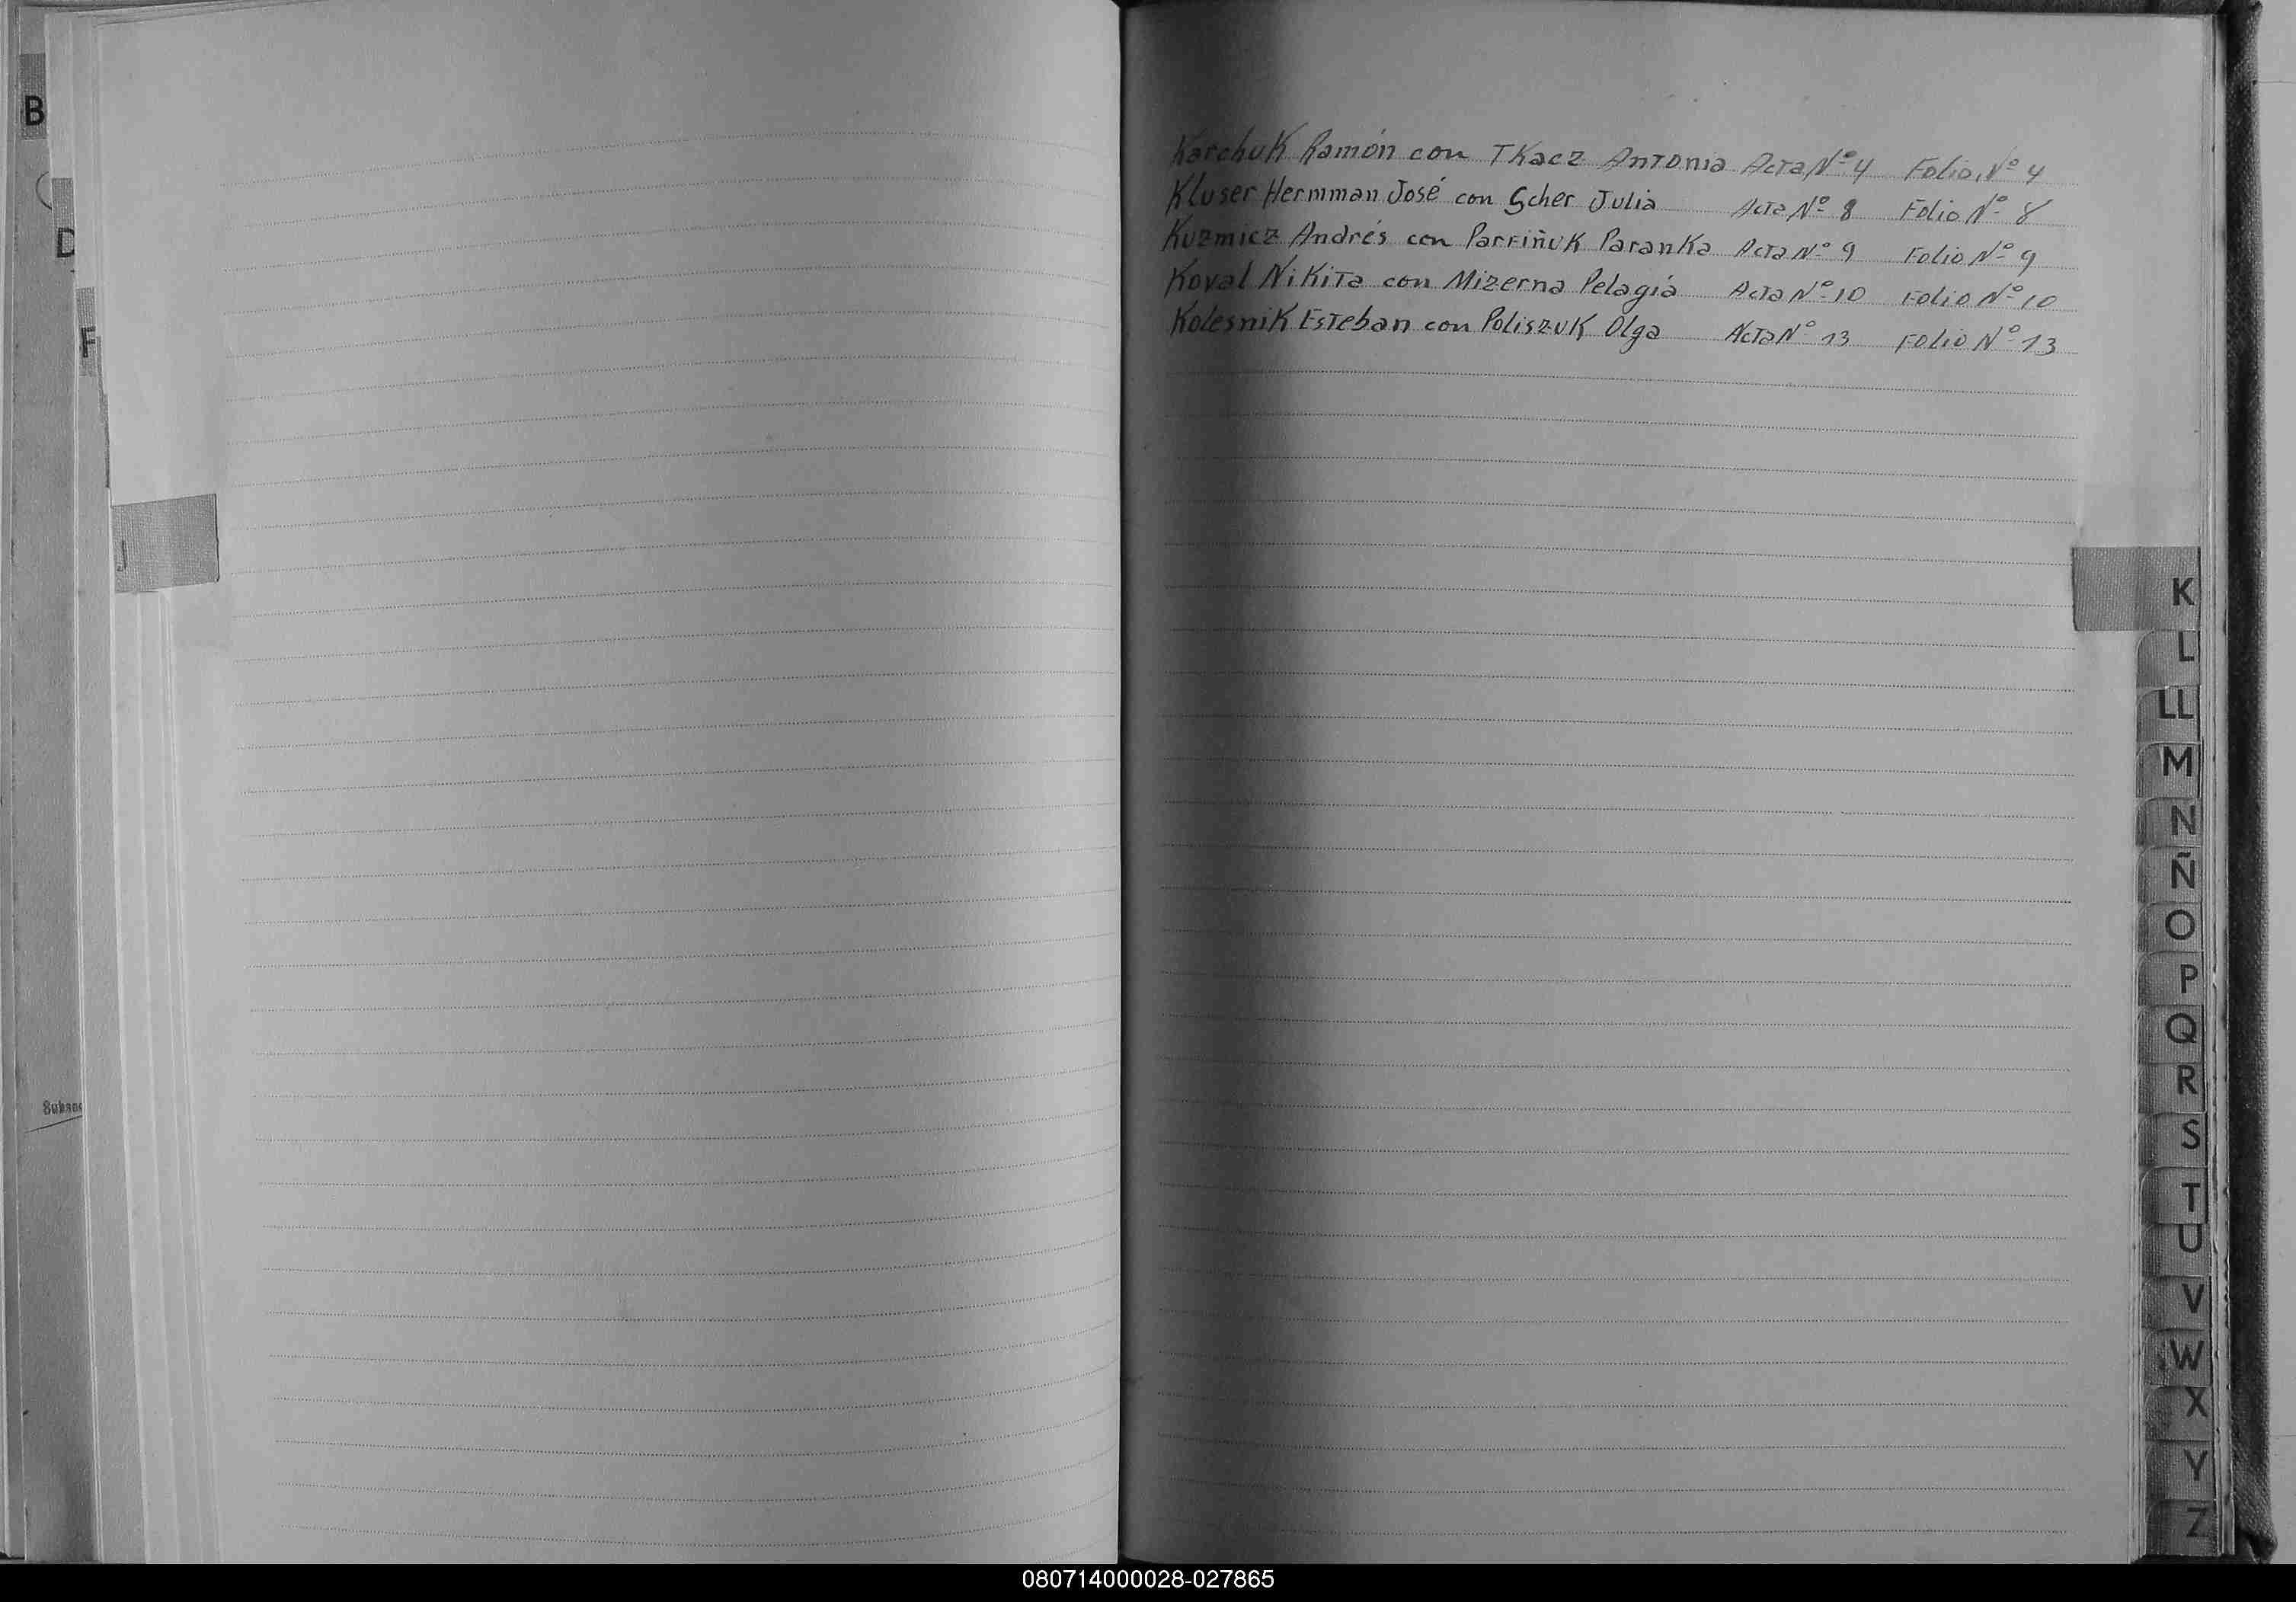 B
D
F
J
Karchuk Ramón con Tkacz Antonia Acta Nº 4 Folio Nº 4
Kluser Hermman José con Scher Julia Acta Nº 8 Folio Nº 8
Kuzmicz Andrés con Parfiñuk Paranka Acta Nº 9 Folio Nº 9
Koval Nikita con Mizerna Pelagia Acta Nº 10 Folio Nº 10
Kolesnik Esteban con Poliszuk Olga Acta Nº 13 Folio Nº 13
K
L
LL
M
N
Ñ
O
P
Q
R
S
T
U
V
W
X
Y
Z
080714000028-027865